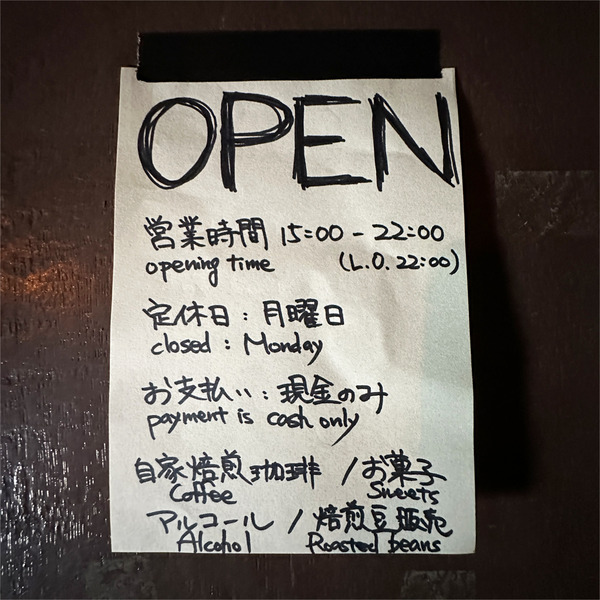 OPEN
営業時間 15:00 - 22:00
opening time (L.O. 22:00)
定休日 : 月曜日
closed : Monday
お支払い : 現金のみ
payment is cash only
自家焙煎珈琲 / お菓子
Coffee Sweets
アルコール / 焙煎豆販売
Alcohol Roasted beans